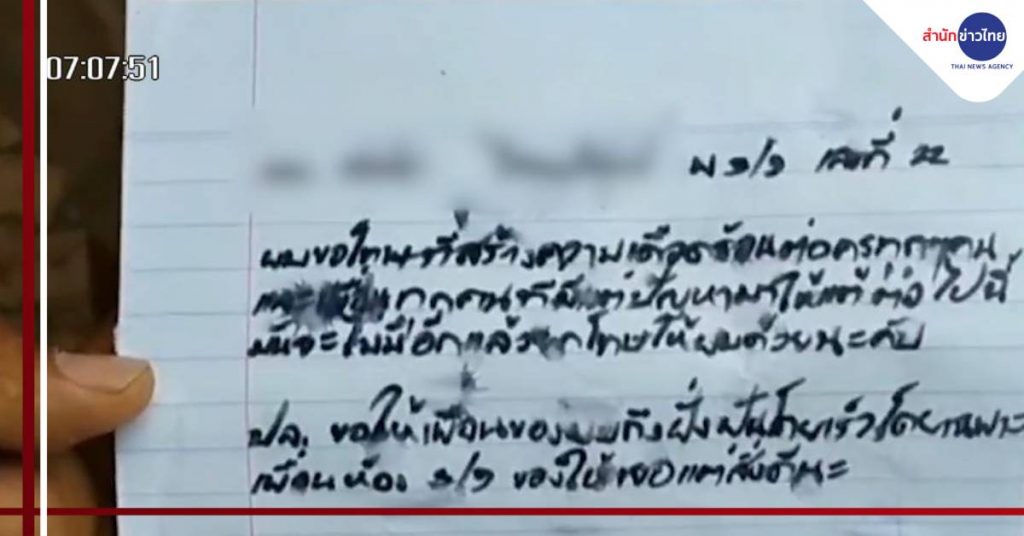 สำนักข่าวไทย
THAI NEWS AGENCY
07:07:51
ม ๑/๑ เลขที่ 22
ผมขอโทษที่สร้างความเดือดร้อนต่อครูทุกๆคน
และเพื่อนทุกคนที่มีแต่ปัญหามาให้แต่ต่อไปนี้
มันจะไม่มีอีกแล้วยกโทษให้ผมด้วยนะคับ
ปล. ขอให้เพื่อนของผมถึงฝั่งฝันโดยเร็วโดยเฉพาะ
เพื่อนห้อง ๑/๑ ขอให้เจอแต่สิ่งดีนะ